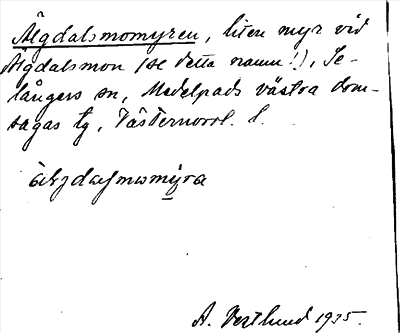 Älgdalsmomyren, liten myr vid
Älgdalsmon (se detta namn!), Se-
långers sn, Medelpads västra dom-
sagas tg, Västernorrl. l.
älgdalsmomýra
A. Vestlund 1935.